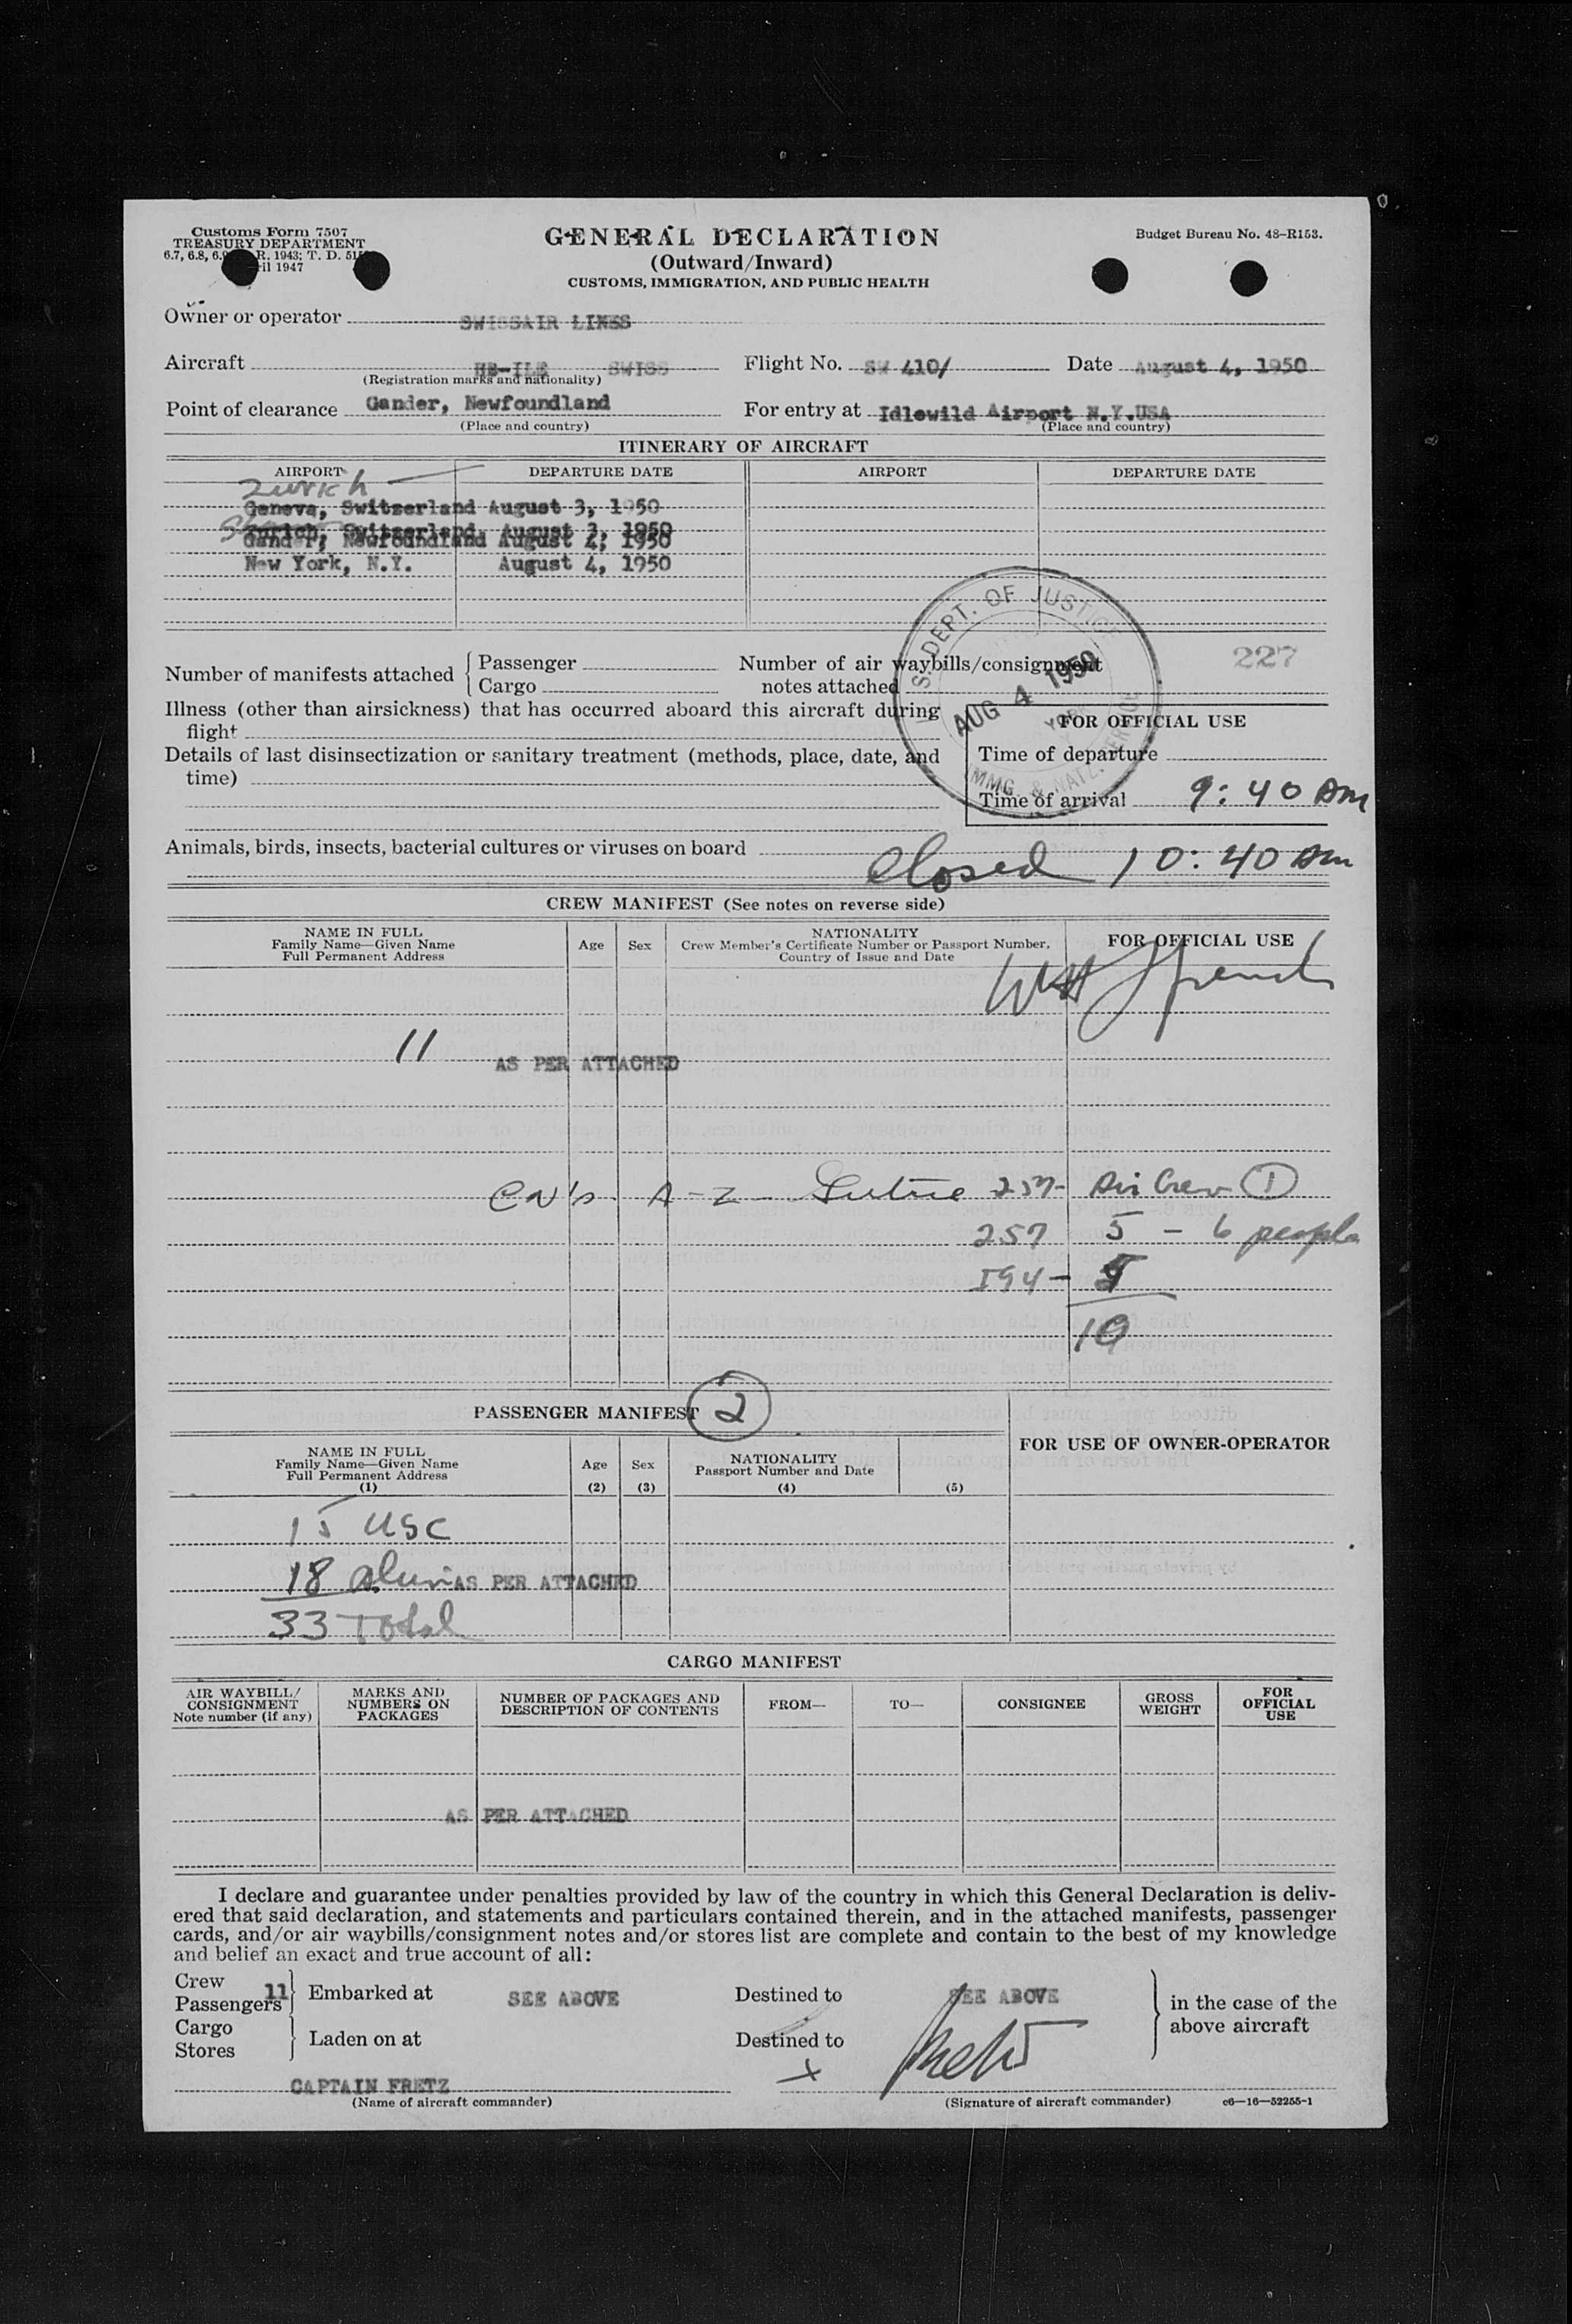 Customs Form 7507
TREASURY DEPARTMENT
6.7, 6.8, R. 1943; T. D.
1947
GENERAL DECLARATION
(Outward/Inward)
CUSTOMS, IMMIGRATION, AND PUBLIC HEALTH
Budget Bureau No. 48-R153.
Owner or operator SWISSAIR LINES
Aircraft HB-ILE SWISS Flight No. SW 410/ Date August 4, 1950
(Registration marks and nationality)
Point of clearance Gander, Newfoundland For entry at Idlewild Airport N.Y.USA
(Place and country) (Place and country)
ITINERARY OF AIRCRAFT
AIRPORT DEPARTURE DATE AIRPORT DEPARTURE DATE
Zurich
Geneva, Switzerland August 3, 1950
Zurich, Switzerland, August 3, 1950
Gander, Newfoundland August 4, 1950
New York, N.Y. August 4, 1950
S. DEPT. OF JUSTICE
AUG 4 1950
YORK
IMMG. & NATZ. SERVICE
Number of manifests attached { Passenger Number of air waybills/consignment 227
Cargo notes attached
Illness (other than airsickness) that has occurred aboard this aircraft during
flight
FOR OFFICIAL USE
Details of last disinsectization or sanitary treatment (methods, place, date, and
time)
Time of departure
Time of arrival 9:40 AM
Animals, birds, insects, bacterial cultures or viruses on board
Closed 10:40 AM
CREW MANIFEST (See notes on reverse side)
NAME IN FULL
Family Name—Given Name
Full Permanent Address
Age Sex
NATIONALITY
Crew Member's Certificate Number or Passport Number,
Country of Issue and Date
FOR OFFICIAL USE
11 AS PER ATTACHED
A-Z 257- Air Crew 1
257 5 - 6 people
I94-
10
PASSENGER MANIFEST 2
FOR USE OF OWNER-OPERATOR
NAME IN FULL
Family Name—Given Name
Full Permanent Address
(1)
Age
(2)
Sex
(3)
NATIONALITY
Passport Number and Date
(4) (5)
15 USC
18 AS PER ATTACHED
33 Total
CARGO MANIFEST
AIR WAYBILL/
CONSIGNMENT
Note number (if any)
MARKS AND
NUMBERS ON
PACKAGES
NUMBER OF PACKAGES AND
DESCRIPTION OF CONTENTS
FROM— TO— CONSIGNEE
GROSS
WEIGHT
FOR
OFFICIAL
USE
AS PER ATTACHED
I declare and guarantee under penalties provided by law of the country in which this General Declaration is deliv-
ered that said declaration, and statements and particulars contained therein, and in the attached manifests, passenger
cards, and/or air waybills/consignment notes and/or stores list are complete and contain to the best of my knowledge
and belief an exact and true account of all:
Crew 11
Passengers } Embarked at SEE ABOVE Destined to SEE ABOVE } in the case of the
above aircraft
Cargo
Stores } Laden on at Destined to
x
CAPTAIN FRETZ
(Name of aircraft commander) (Signature of aircraft commander) c6—16—52255-1